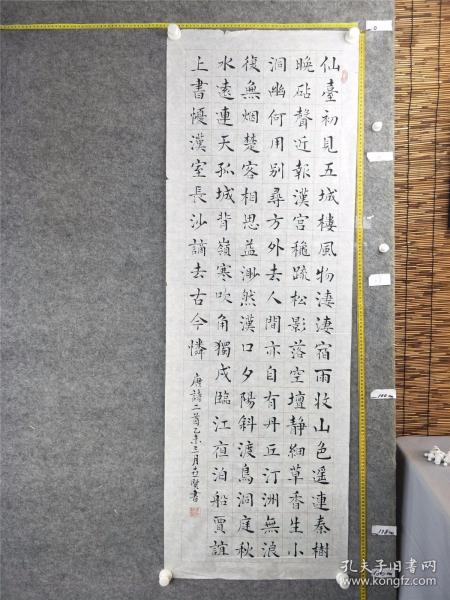 仙臺初見五城樓風物淒淒宿雨收山色遥連秦樹
晚砧聲近報漢宮穐疏松影落空壇靜細草香生小
洞幽何用別尋方外去人間亦自有丹丘汀洲無浪
復無烟楚客相思益渺然漢口夕陽斜渡鳥洞庭秋
水遠連天孤城背嶺寒吹角獨戍臨江夜泊船賈誼
上書懮漢室長沙謫去古今憐
唐詩二首乙未三月賢書
孔夫子旧书网
www.kongfz.com